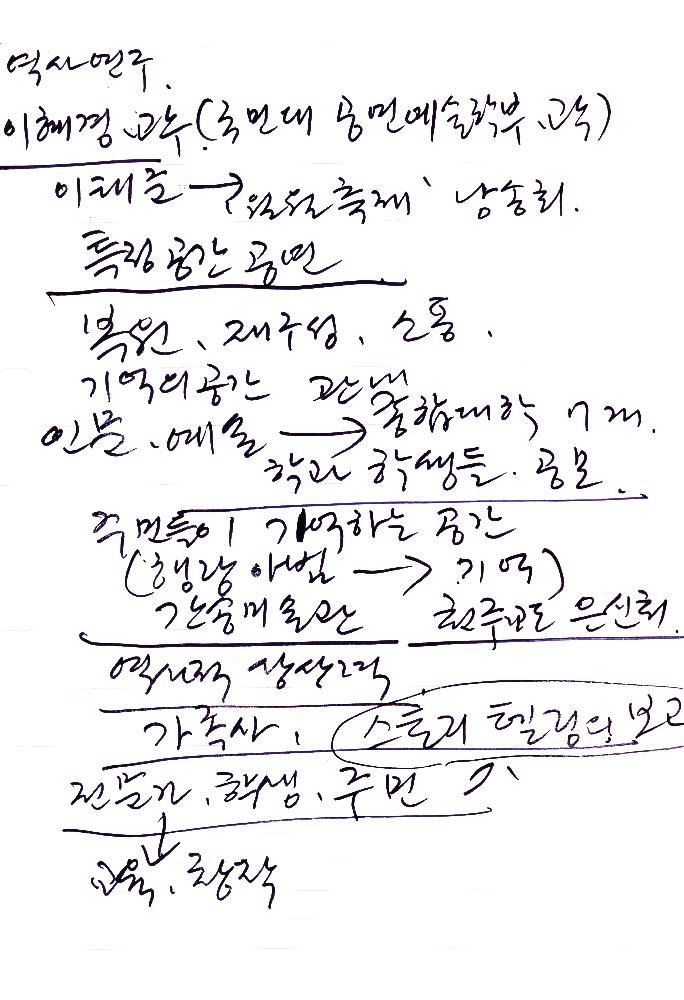 역사연구.
이혜경 교수 (국민대 공연예술학부 교수)
이태준 → 낭송회.
특정 공간 공연
복원, 재구성, 소통.
기억의 공간 관내
인문, 예술 → 종합대학 7개.
학과 학생들. 공모.
주민들이 기억하는 공간
(행랑아범 → 기억)
간송미술관 천주교도 은신처.
역사적 상상력
가족사, 스토리 텔링의 보고
전문가, 학생, 주민
교육, 창작